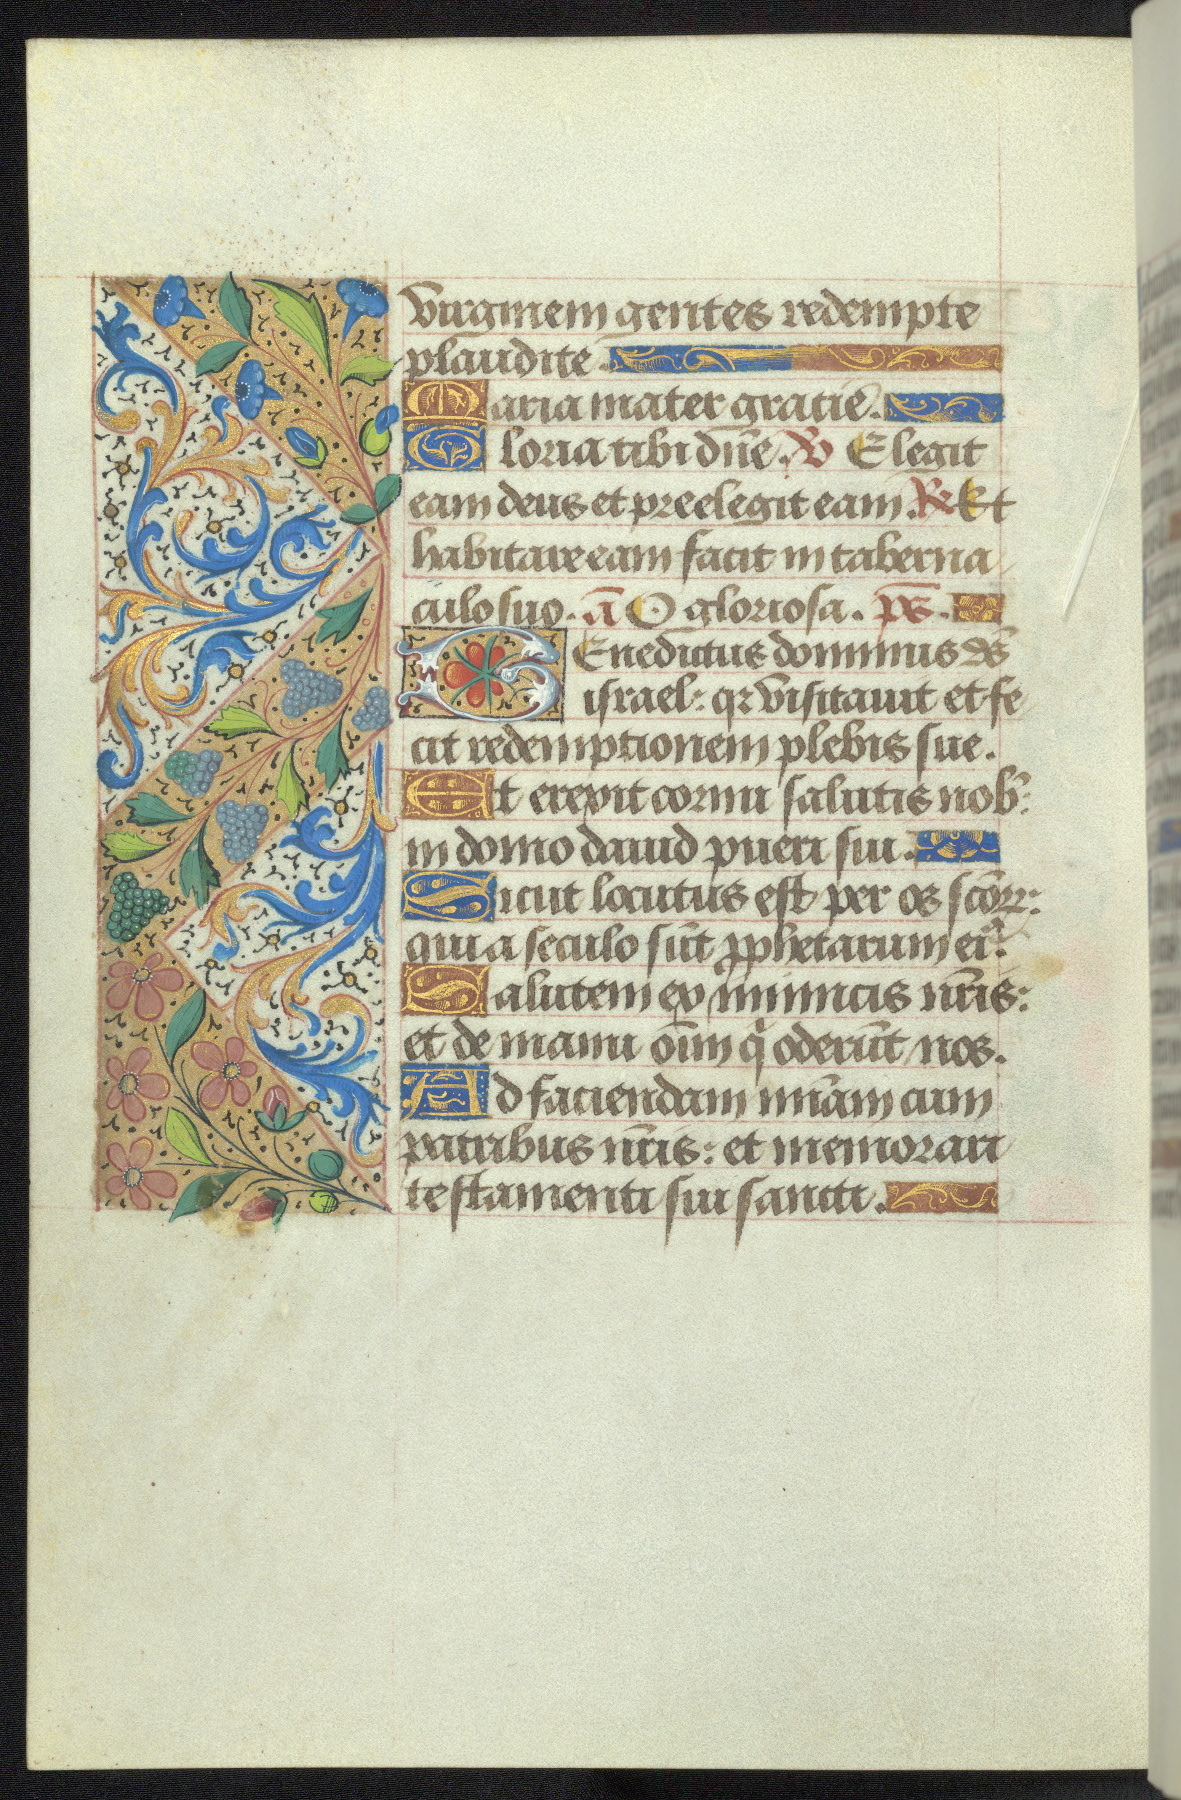 virginem gentes redempte
plaudite.
Maria mater gratiē.
Gloria tibi dn̄e. v̄ Elegit
eam deus et preelegit eam. R̄ Et
habitare eam facit in taberna
culo suo. ā O gloriosa. ps̄.
Benedictus dominus ds̄
israel: qr visitauit et fe
cit redemptionem plebis sue.
Et erexit cornu salutis nob̄:
in domo dauid pueri sui.
Sicut locutus est per os scōrr:
qui a seculo sūt ꝓphetarum eiꝰ:
Salutem ex inimicis nr̄is:
et de manu oīm q̄ oderūt nos.
Ad faciendam mīam cum
patribus nr̄is: et memorari
testamenti sui sancti.